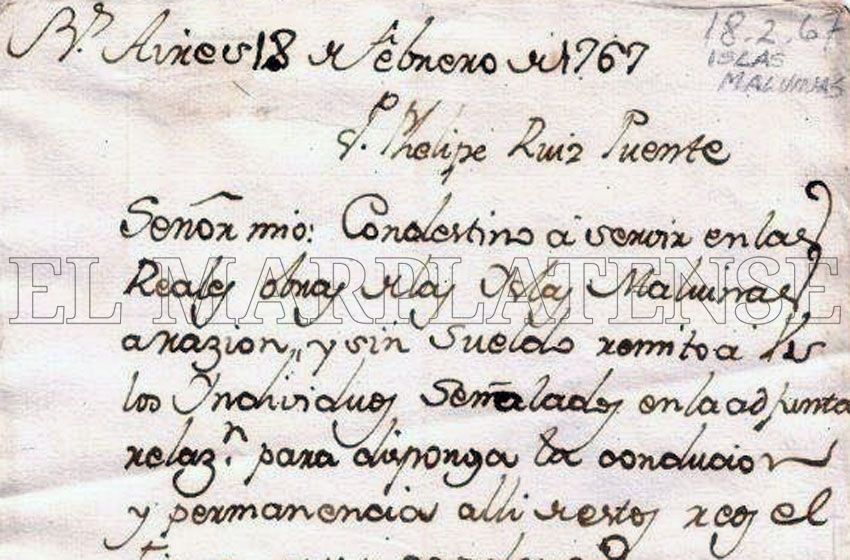 Bs. Aires 18 de Febrero de 1767
18.2.67
ISLAS
MALVINAS
Sr. Dn. Phelipe Ruiz Puente
Señor mio: Con destino a servir en las
Reales obras de las Yslas Malvinas
EL MARPLATENSE
a razion, y sin sueldo remito a Vs
los Yndividuos Señalados en la adjunta
relazn. para disponga la conducion
y permanencia alli de estos reos el